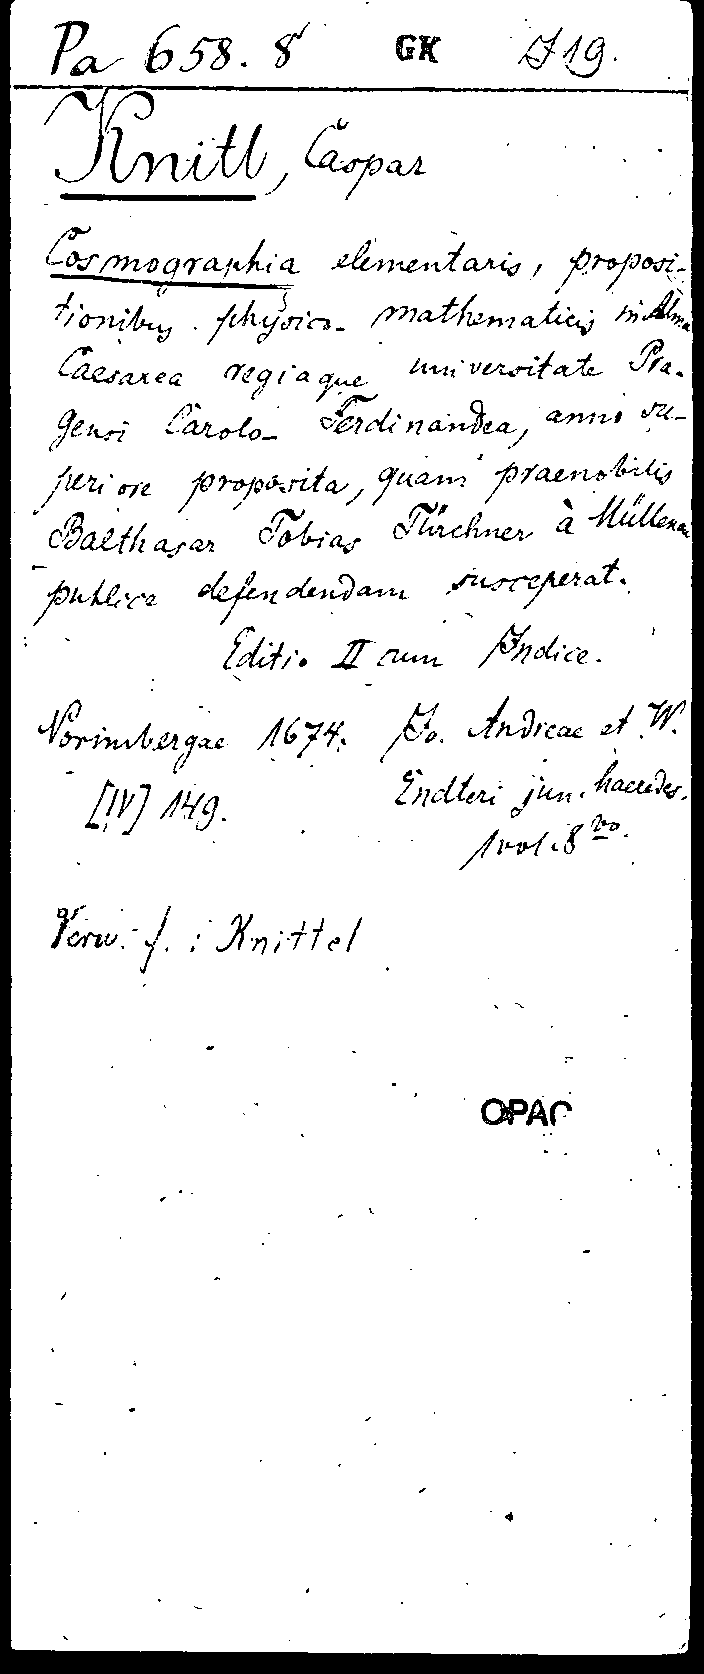 Pa 658. 8 GK J 19.
Knitl, Caspar
Cosmographia elementaris, proposi-
tionibus physico- mathematicis in Alma
Caesarea regiaque universitate Pra-
gensi Carolo- Ferdinandea, anno su-
periore proposita, quam praenobilis
Balthasar Tobias à
publice defendendam susceperat.
Editio II cum Indice.
Norimbergae 1674. Jo. Andreae et W.
Endteri jun. haeredes.
[IV] 149.
1 vol. 8vo.
Verw. f.: Knittel
OPAC